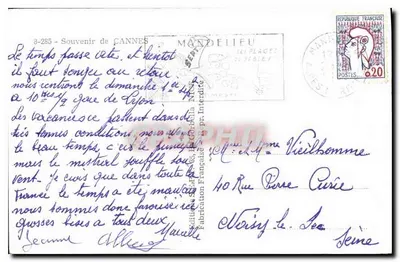 9-285 - Souvenir de CANNES
MANDELIEU
SES PLAGES
REPUBLIQUE FRANÇAISE
POSTES 0,20
Le temps passe vite, et bientôt
il faut songer au retour
nous rentrons le dimanche 1er
à 10 gare de Lyon
des vacances se passent dans de
très bonnes conditions
le beau temps, c'est le
mais le mistral souffle sou
vent. je crois que dans toute la
France le temps a été mauvais
nous sommes donc favorisés
grosses bises a tous deux
Marcelle
Jeanne Albert
Fabrication Française - Repr. Interdite
Mr et Mme Vieilhomme
40 Rue Pierre Curie
Noisy le Sec
Seine